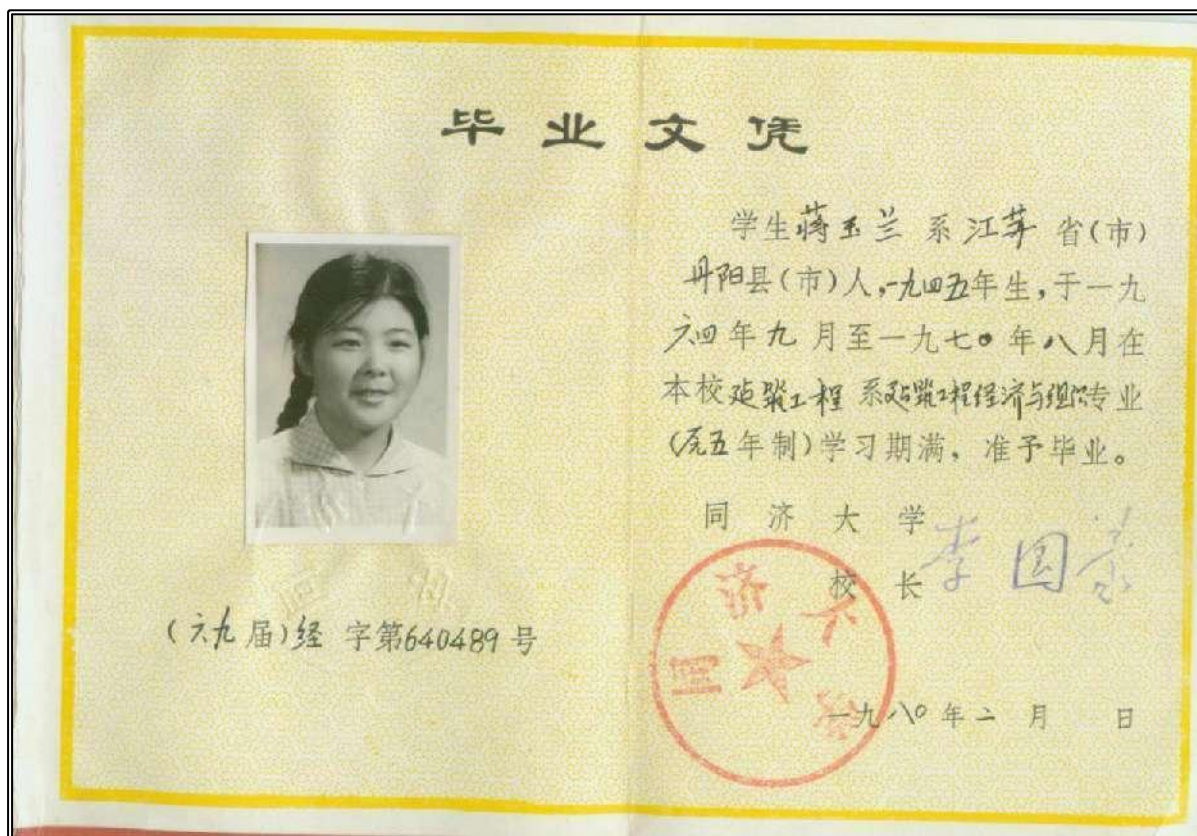 毕业文凭
学生蒋玉兰 系江苏 省(市)
丹阳县(市)人,一九四五年生,于一九
六四年九 月至一九七〇年八月在
本校建筑工程 系建筑工程经济与组织专业
(原五年制)学习期满、准予毕业。
同济大学
校长 李国豪
同济大学
一九八〇年二 月 日
(六九届)经 字第640489号